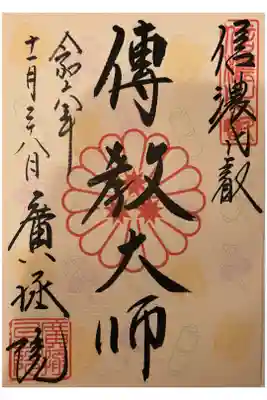 信濃比叡
傳教大師
令和六年
十一月二十八日
廣拯院